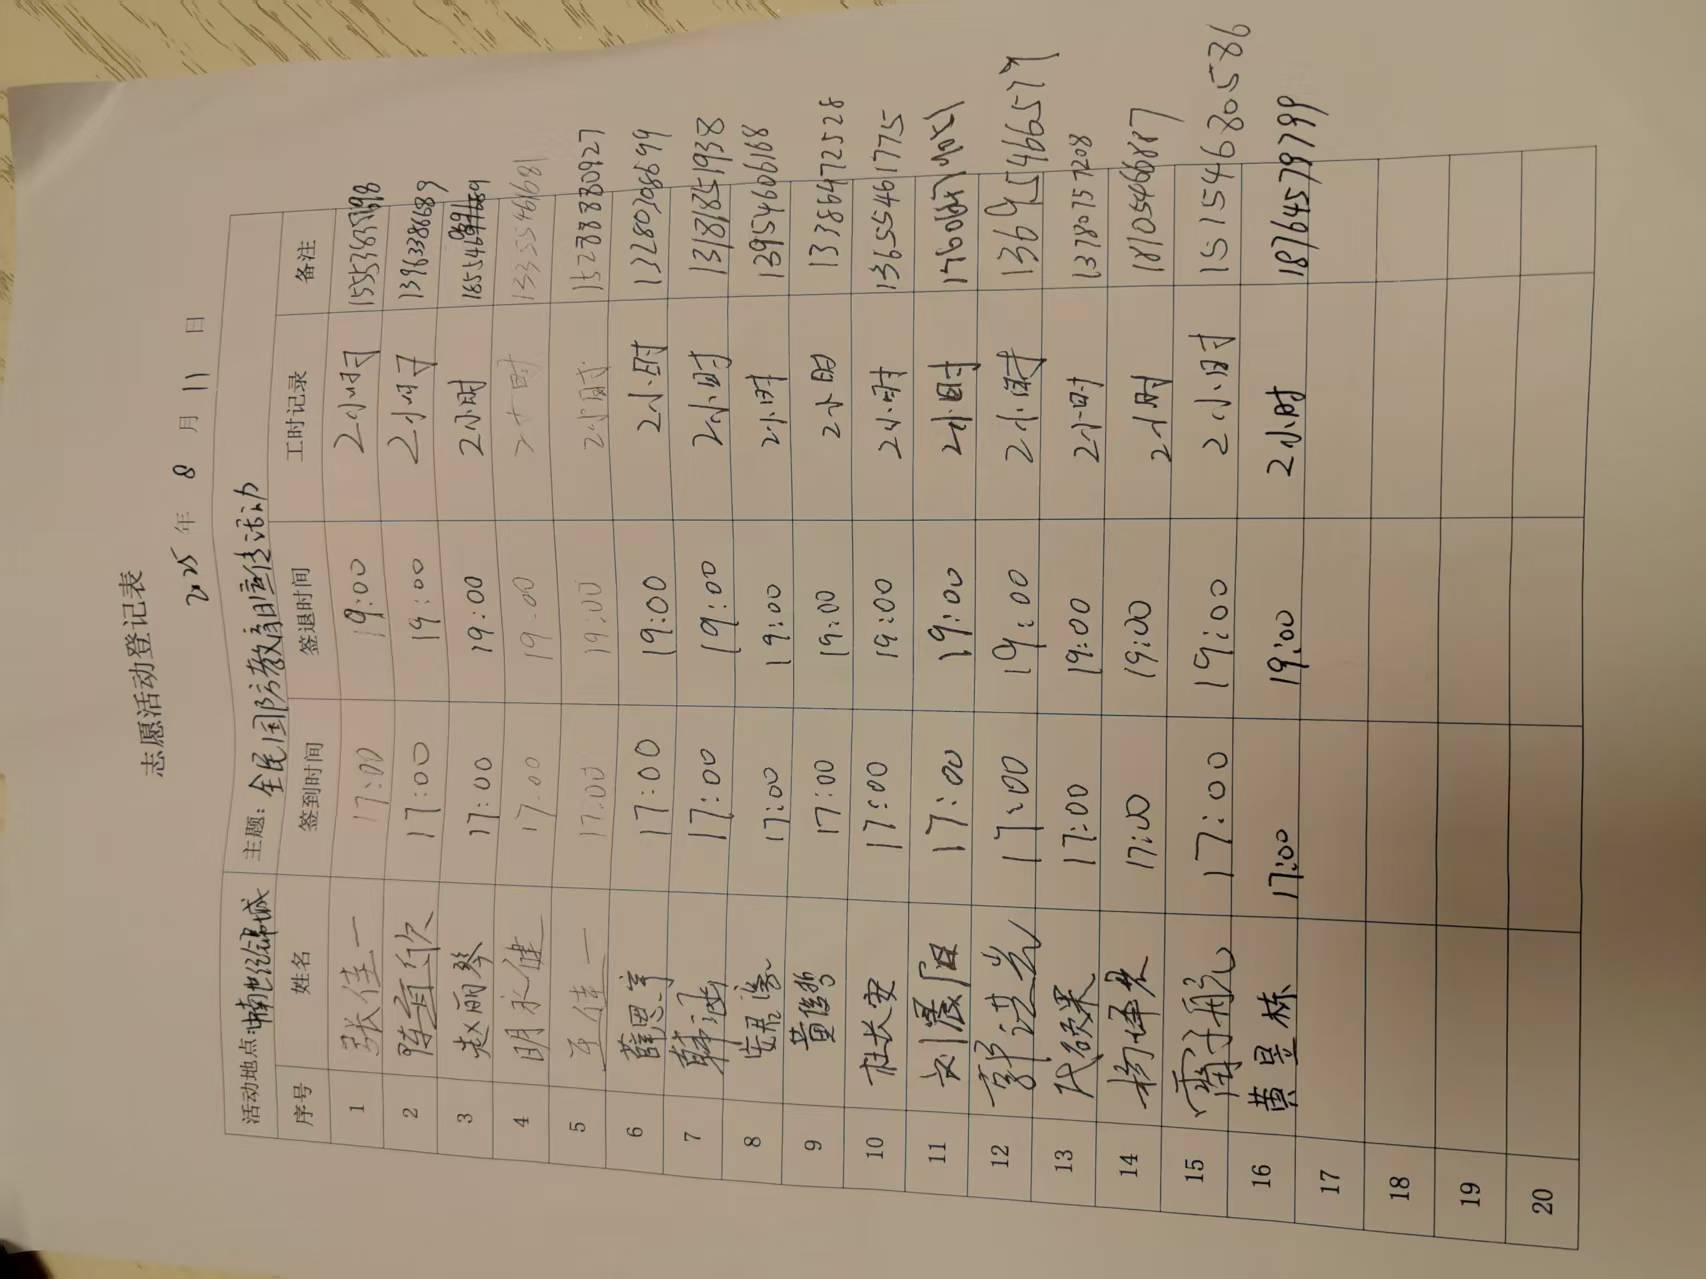 志愿活动登记表
2025 年 8 月 11 日
活动地点: 主题: 全民国防教育日宣传活动
序号 姓名 签到时间 签退时间 工时记录 备注
1 张佳一 17:00 19:00 2小时
2 17:00 19:00 2小时 13963386689
3 赵丽琴 17:00 19:00 2小时
4 明永健 17:00 19:00 2小时
5 王佳一 17:00 19:00 2小时 15288880927
6 薛思宇 17:00 19:00 2小时 13280308699
7 韩 17:00 19:00 2小时 13181851938
8 17:00 19:00 2小时 13954606168
9 黄俊哲 17:00 19:00 2小时 13386472528
10 杜长安 17:00 19:00 2小时 13655461775
11 刘晨 17:00 19:00 2小时
12 郭洪 17:00 19:00 2小时
13 代硕果 17:00 19:00 2小时 13780757208
14 杨 17:00 19:00 2小时 18105466887
15 17:00 19:00 2小时 15154680586
16 黄昱栋 17:00 19:00 2小时 18764579799
17
18
19
20